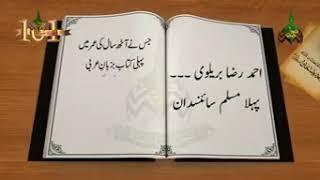 احمد رضا بریلوی ۔۔۔
پہلا مسلم سائنسدان
جس نے آٹھ سال کی عمر میں
پہلی کتاب بزبان عربی